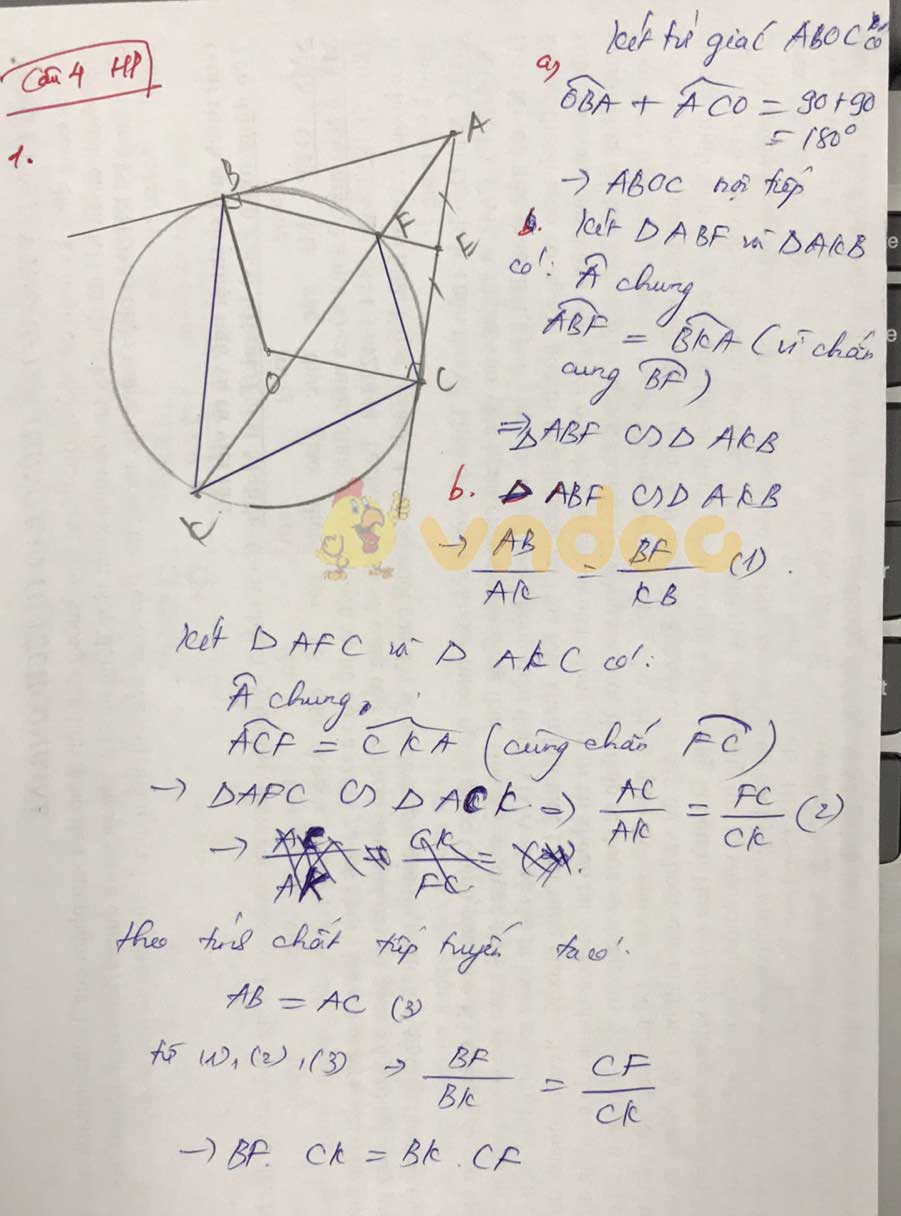 Câu 4 HP
1.
Xét tứ giác ABOC có
a,
OBA + ACO = 90 + 90
= 180°
→ ABOC nội tiếp
b. Xét Δ ABF và Δ AKB
có: Â chung
ABF = BKA (vì chắn
cung BF)
⇒ Δ ABF ∽ Δ AKB
b. Δ ABF ∽ Δ AKB
→ AB/AK = BF/KB (1).
Xét Δ AFC và Δ AKC có:
Â chung.
ACF = CKA (cùng chắn FC)
→ Δ AFC ∽ Δ ACK ⇒ AC/AK = FC/CK (2)
theo tính chất tiếp tuyến ta có:
AB = AC (3)
từ (1), (2), (3) → BF/BK = CF/CK
→ BF. CK = BK. CF
A
B
F
E
O
C
K
vndoc